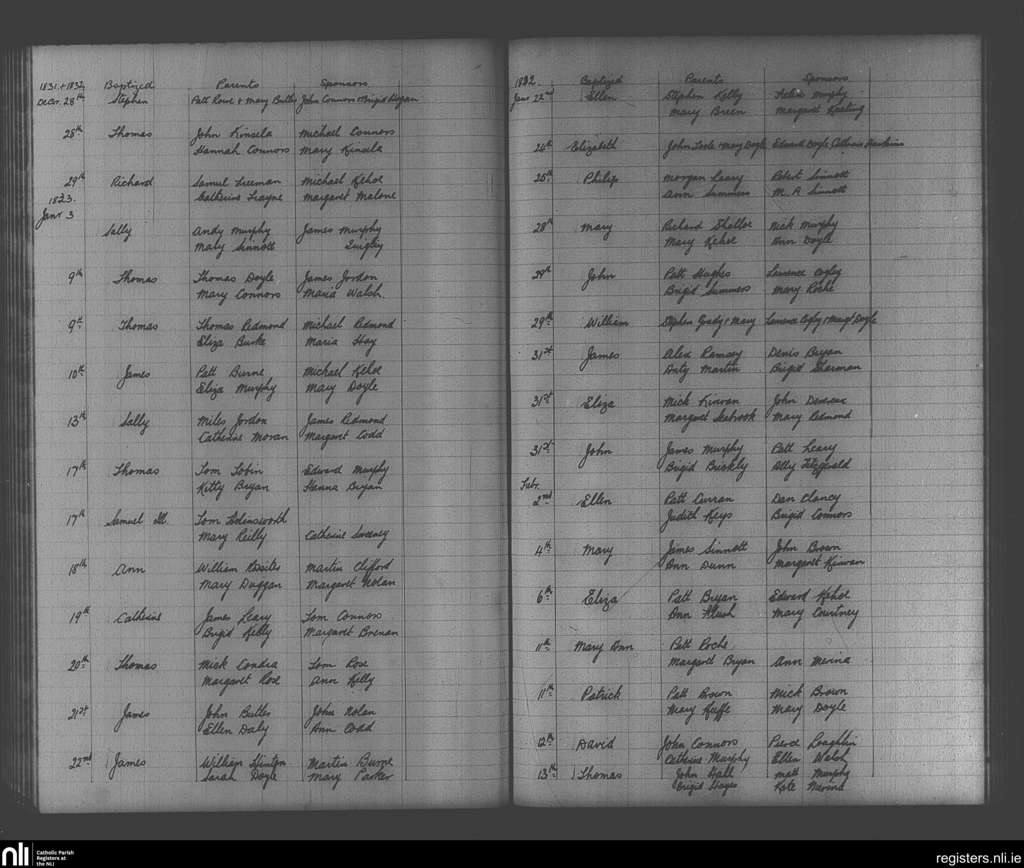 1831.+1832. Baptized Parents Sponsors
Decr. 28th Stephen Patt Rowe + Mary Butler John Connors + Brigid Hogan
28th Thomas John Kinsela Michael Connors
Hannah Connors Mary Kinsela
29th Richard Samuel Freeman Michael Kehoe
Catherine Frayne Margaret Malone
1823.
Janr 3
Sally Andy Murphy James Murphy
Mary Sinnott Quigley
9th Thomas Thomas Doyle James Jordon
Mary Connors Maria Walsh.
9th Thomas Thomas Redmond Michael Redmond
Eliza Burke Maria Hay
10th James Patt Burne Michael Kehoe
Eliza Murphy Mary Doyle
13th Sally Miles Jordon James Redmond
Catherine Moran Margaret Codd
17th Thomas Tom Tobin Edward Murphy
Kitty Bryan Hanna Bryan
17th Samuel Ill. Tom
Mary Reilly Catherine Sweeney
18th Ann William Rositer Martin Clifford
Mary Duggan Margaret Nolan
19th Catherine James Leary Tom Connors
Brigid Kelly Margaret Brenan
20th Thomas Mick Condra Tom Rose
Margaret Rose Ann Kelly
21st James John Butler John Nolan
Ellen Daly Ann Codd
22nd James William Hinton Martin Burne
Sarah Doyle Mary Parker
1832. Baptized Parents Sponsors
Janr 22nd Ellen Stephen Kelly Murphy
Mary Breen Margaret Keating
24th Elizabeth John Toole + Mary Doyle Edward Doyle, Catherine Hawkins
25th Philip Morgan Leary Robert Sinnott
Ann Summers M. A. Sinnott
28th Mary Richard Shalloe Nick Murphy
Mary Kehoe Ann Doyle
29th John Patt Hughes Laurence Cogley
Brigid Summers Mary Roche
29th William Stephen Grady + Mary Laurence Cogley + Margt Doyle
31st James Alex Ramsey Denis Bryan
Duty Martin Brigid Sherman
31st Eliza Mick Kirwan John Devereux
Margaret Seabrook Mary Redmond
31st John James Murphy Patt Leary
Brigid Brickly Ally Fitzgerald
Febr.
2nd Ellen Patt Curran Dan Clancy
Judith Keys Brigid Connors
4th Mary James Sinnott John Brown
Ann Dunn Margaret Kirwan
6th Eliza Patt Bryan Edward Kehoe
Ann Flush Mary Courtney
11th Mary Ann Patt Roche
Margaret Bryan Ann Merina
11th Patrick Patt Brown Mick Brown
Mary Keeffe Mary Doyle
12th David John Connors Pierce Loughlin
Catherine Murphy Ellen Walsh
13th Thomas John Hall Matt Murphy
Brigid Hayes Kate Merina
nli Catholic Parish
Registers at
the NLI
registers.nli.ie